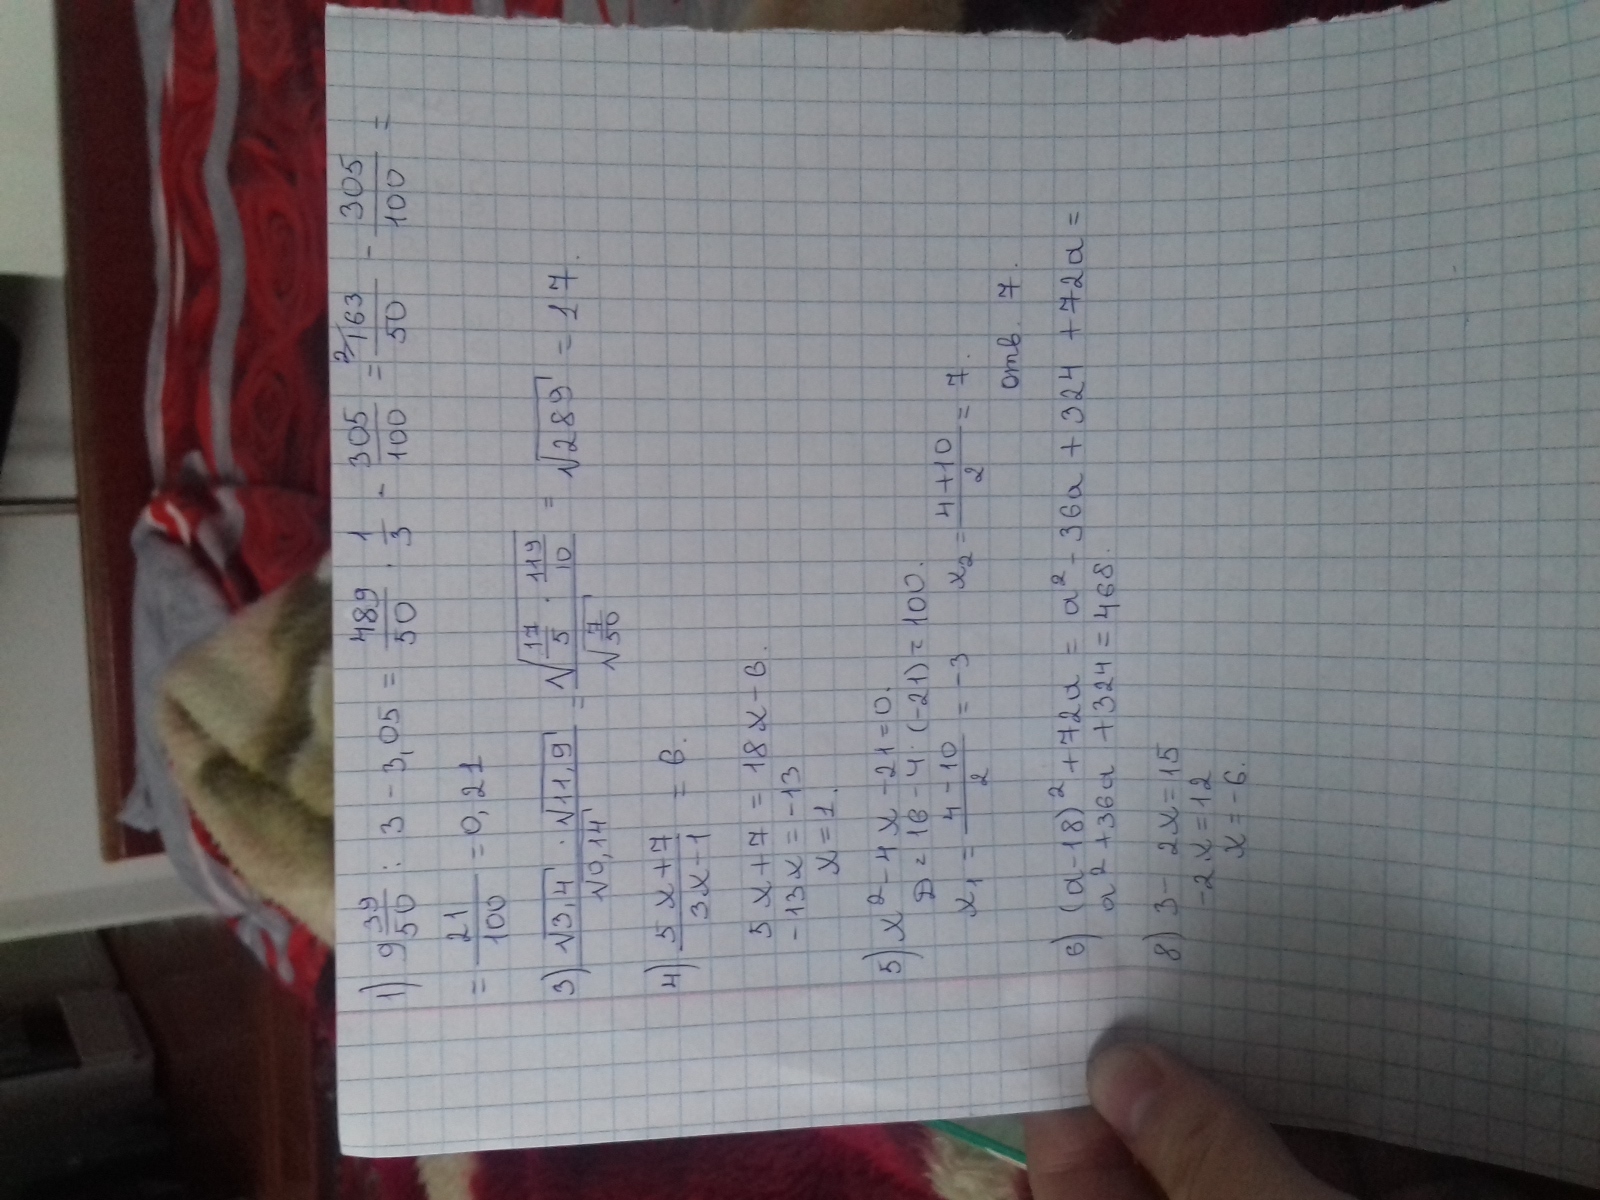 1) 9 39/50 : 3 - 3,05 = 489/50 · 1/3 - 305/100 = 2/163/50 - 305/100 =
= 21/100 = 0,21
3) √3,4 · √11,9 / √0,14 = √(17/5 · 119/10) / √(7/50) = √289 = 17.
4) 5x+7 / 3x-1 = 6.
5x+7 = 18x-6.
-13x = -13
x=1.
5) x² - 4x - 21=0.
D = 16 - 4 · (-21) = 100.
x₁ = 4-10 / 2 = -3 x₂ = 4+10 / 2 = 7.
отв. 7.
6) (a-18)² + 72a = a² - 36a + 324 + 72a =
a² + 36a + 324 = 468.
8) 3 - 2x = 15
-2x = 12
x = -6.